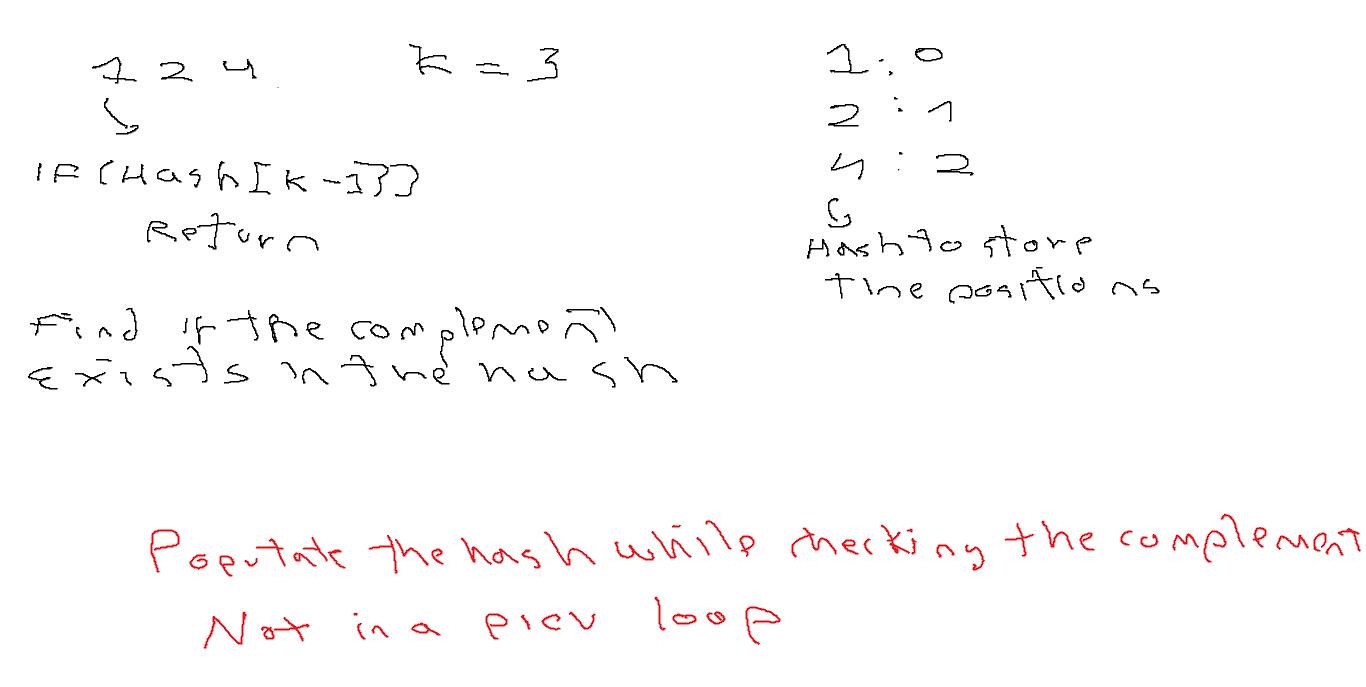 1 2 4 k = 3
IF (Hash[k-1]])
Return
Find if the complement
Exists in the hash
1 : 0
2 : 1
4 : 2
Hash to store
the positions
Populate the hash while checking the complement
Not in a prev loop